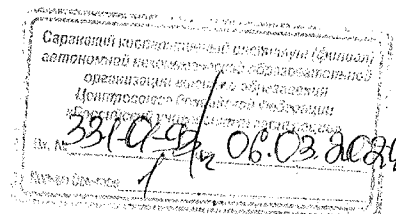 Саранский кооперативный институт (филиал)
автономной некоммерческой образовательной
организации высшего образования
Центросоюза Российской Федерации
«Российский университет кооперации»
Вх. № 06.03.2024
1